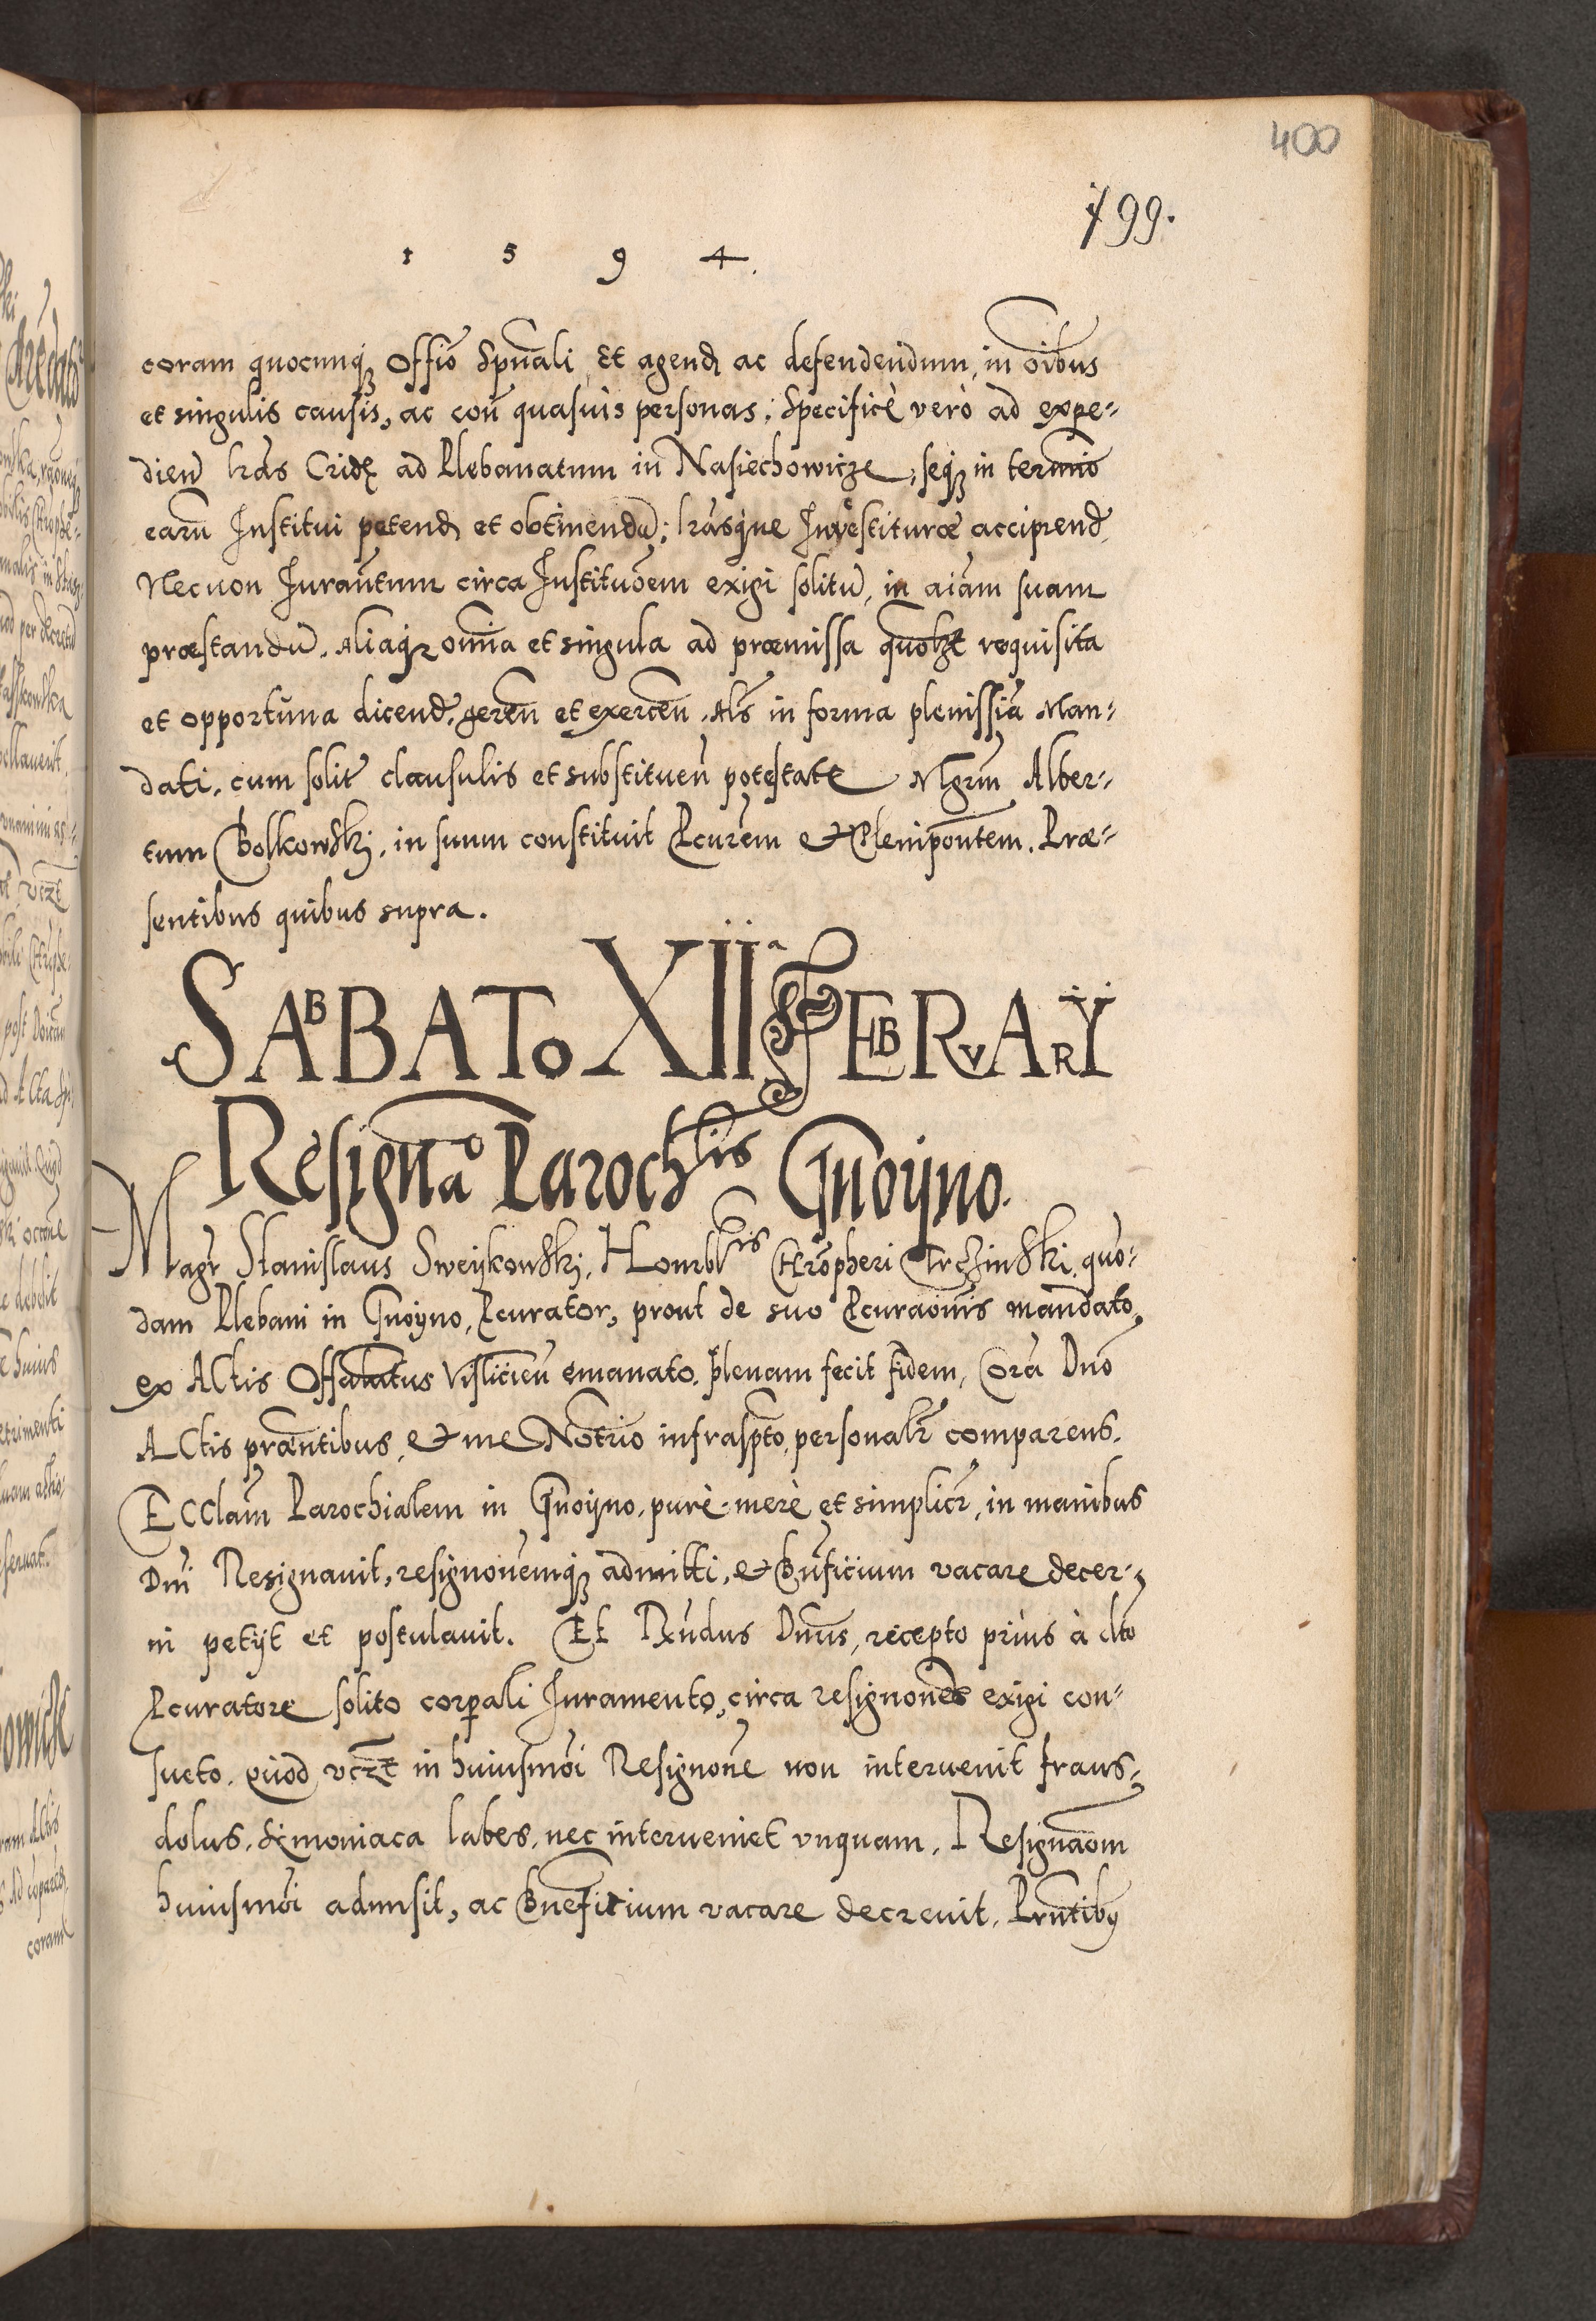 400
199.
1 5 9 4.
coram quocunq3 Offiō Spnāli, Et agend ac defendendum, in oībus
et singulis causis, ac coñ quasuis personas: Specificè verò ad expe-
dien lrās Cridę ad Plebanatum in Nasiechowicze, seq3 in termīo
earū Institui petend et obtinendū: lrāsque Investituræ acciprend,
Necnon Jurāntum circa Instituōem exigi solitū, in aīam suam
præstandū. Aliaq3 omīa et singula ad præmissa quōlzt requisita
et opportuna dicend, gereñ et exerceñ. Als in forma plenissīa Man-
dati, cum solit clausulis et substitueñ potestate Mgrm̄ Alber-
tum Bolkowskj, in suum constituit Pcurēm et Plenipōntem. Præ-
sentibus quibus supra.
SABBATO XIIª FEBRVARY
Resignao Parochlis Gnoyno.
Magr Stanislaus Sweykowskj, Honrblis Chrōpheri Trczinski quo-
dam Plebani in Gnoyno, Pcurator, prout de suo Pcuraōnis mandato,
ex Actis Offulatus Visliceñ emanato, plenam fecit fidem, Corā Dnō
Actis præntibus, et me Notrio infraspto, personalr comparens.
Ecclām Parochialem in Gnoyno, purè merè et simplicr, in manibus
Dnī Resignauit, resignōnemq3 admitti, et Bnficium vacare decer-
ni petijt et postulauit. Et Rndus Dnus, recepto priùs à dto
Pcuratore solito corpali Juramento, circa resignones exigi con-
sueto, quod vczt in huiusmōi Resignōne non interuenit fraus,
dolus, Simoniaca labes, nec interueniet vnquam, Resignaōm
huiusmōi admisit, ac Bneficium vacare decreuit, Prntiby